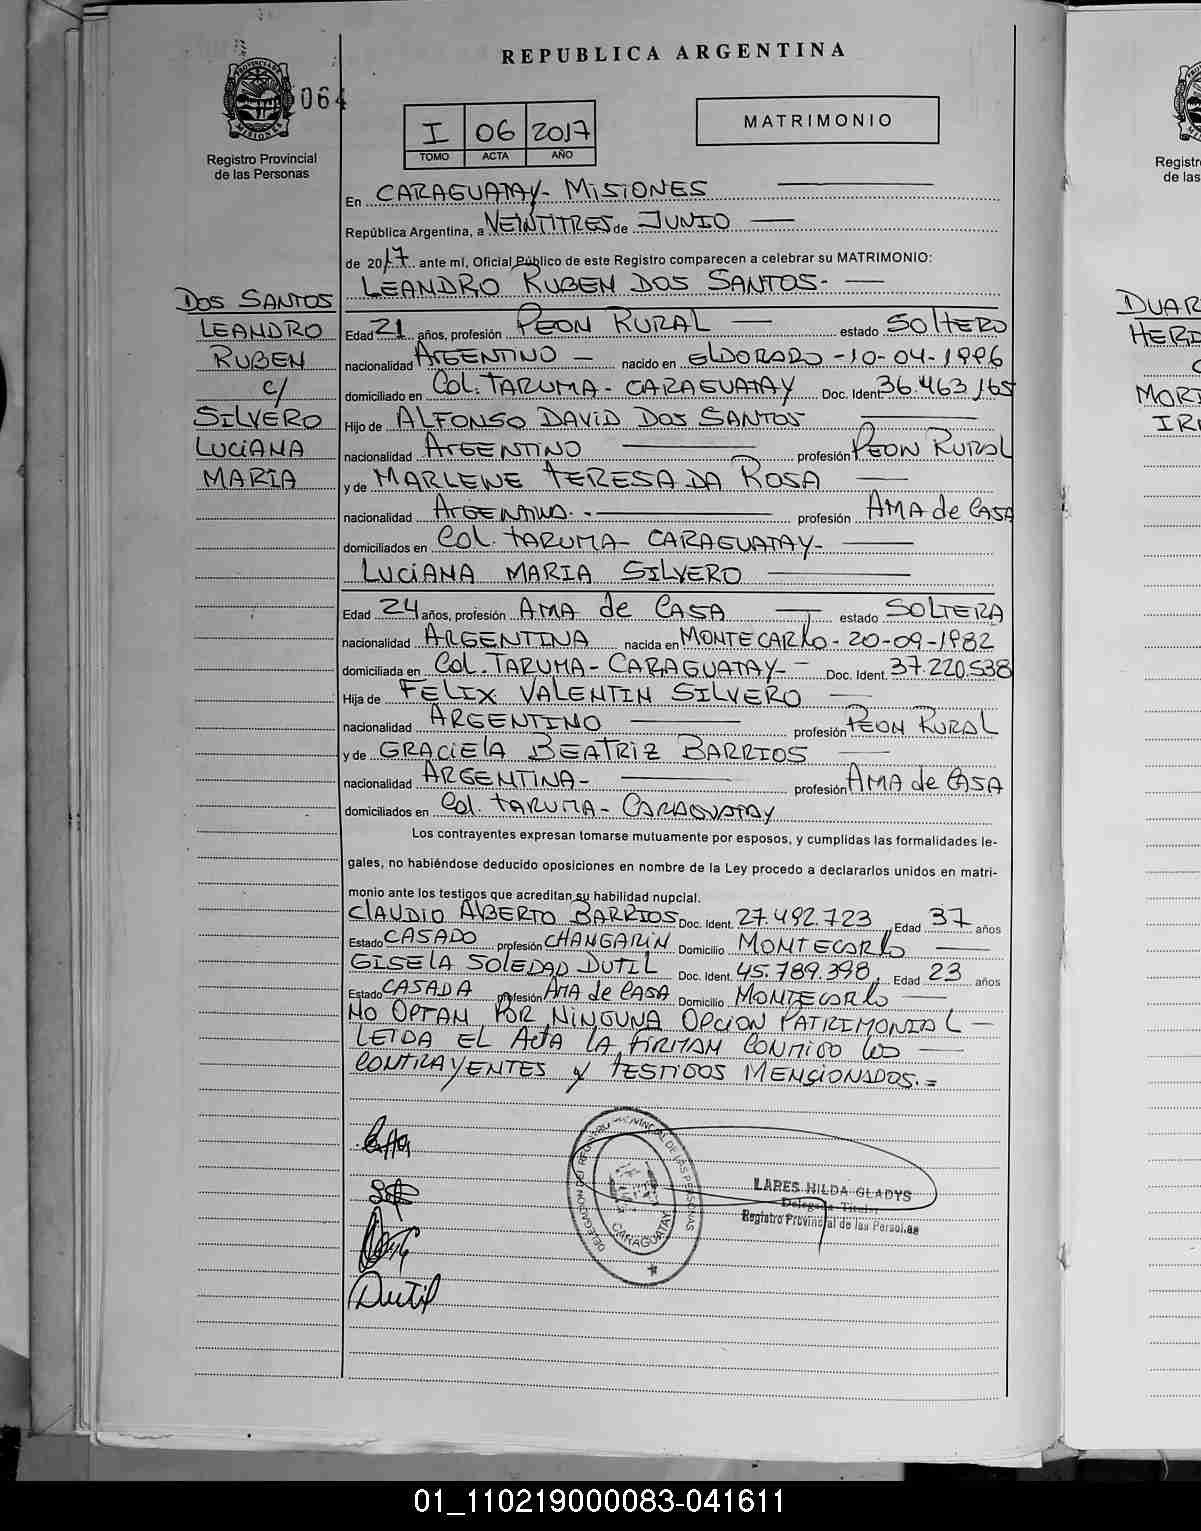 REPUBLICA ARGENTINA
PROVINCIA DE MISIONES
064
Registro Provincial
de las Personas
I 06 2017
TOMO ACTA AÑO
MATRIMONIO
En CARAGUATAY- MISIONES
República Argentina, a VEINTITRES de JUNIO
de 2017 ante mí, Oficial Público de este Registro comparecen a celebrar su MATRIMONIO:
LEANDRO RUBEN DOS SANTOS-
DOS SANTOS
LEANDRO
RUBEN
c/
SILVERO
LUCIANA
MARÍA
Edad 21 años, profesión PEON RURAL estado SOLTERO
nacionalidad ARGENTINO nacido en ELDORADO -10-04-1996
domiciliado en COL. TARUMA- CARAGUATAY Doc. Ident. 36.463.165
Hijo de ALFONSO DAVID DOS SANTOS
nacionalidad ARGENTINO profesión PEON RURAL
y de MARLENE TERESA DA ROSA
nacionalidad ARGENTINA. - profesión AMA de CASA
domiciliados en COL. TARUMA- CARAGUATAY-
LUCIANA MARIA SILVERO
Edad 24 años, profesión AMA de CASA estado SOLTERA
nacionalidad ARGENTINA nacida en MONTECARLO- 20-09-1982
domiciliada en COL. TARUMA- CARAGUATAY- Doc. Ident. 37.220.538
Hija de FELIX VALENTIN SILVERO
nacionalidad ARGENTINO profesión PEON RURAL
y de GRACIELA BEATRIZ BARRIOS
nacionalidad ARGENTINA- profesión AMA de CASA
domiciliados en COL. TARUMA- CARAGUATAY
Los contrayentes expresan tomarse mutuamente por esposos, y cumplidas las formalidades le-
gales, no habiéndose deducido oposiciones en nombre de la Ley procedo a declararlos unidos en matri-
monio ante los testigos que acreditan su habilidad nupcial.
CLAUDIO ALBERTO BARRIOS Doc. Ident. 27.492.723 Edad 37 años
Estado CASADO profesión CHANGARIN Domicilio MONTECARLO
GISELA SOLEDAD DUTIL Doc. Ident. 45.789.398 Edad 23 años
Estado CASADA profesión AMA de CASA Domicilio MONTECARLO
NO OPTAN POR NINGUNA OPCION PATRIMONIAL-
LEIDA EL ACTA LA FIRMAN CONMIGO LOS
CONTRAYENTES y TESTIGOS MENCIONADOS.=
DELEGACION DEL REGISTRO PROVINCIAL DE LAS PERSONAS
CARAGUATAY
LARES HILDA GLADYS
Delegada Titular
Registro Provincial de las Personas
Dutil
Registr
de las
DUAR
HERI
MORI
IRI
01_110219000083-041611